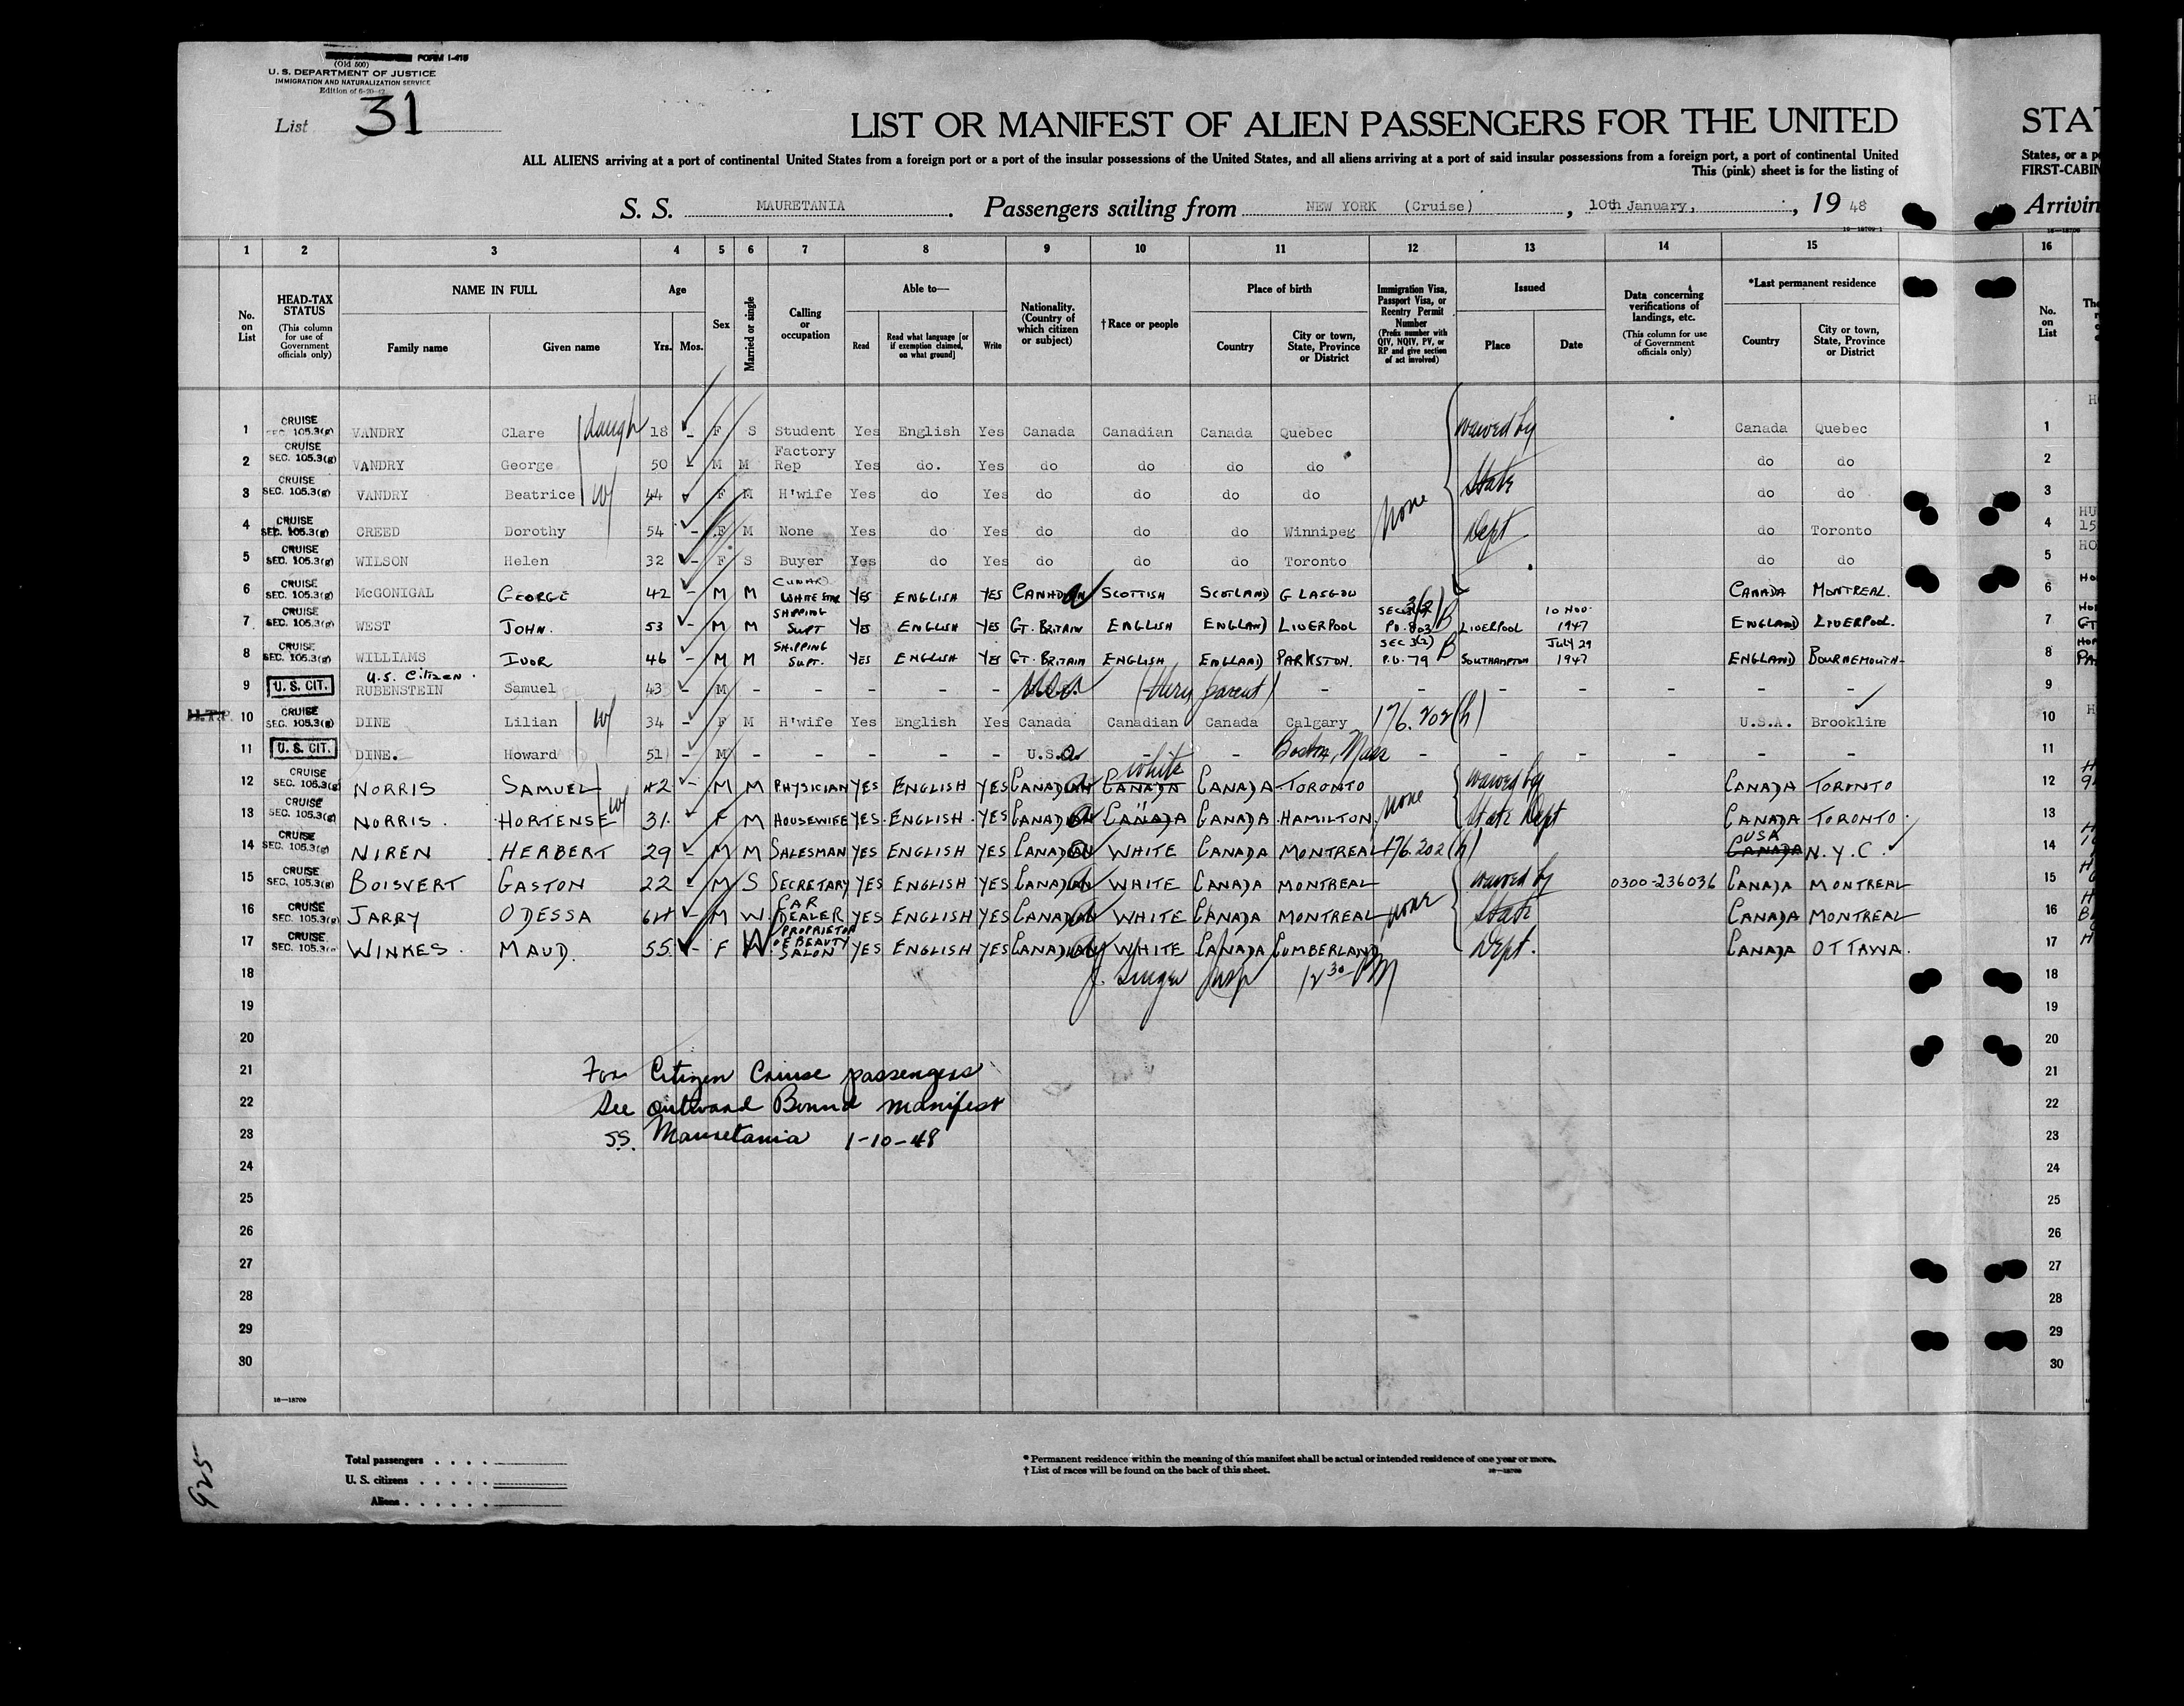 FORM I-415
(Old 500)
U. S. DEPARTMENT OF JUSTICE
IMMIGRATION AND NATURALIZATION SERVICE
Edition of 6-20-42
List 31
LIST OR MANIFEST OF ALIEN PASSENGERS FOR THE UNITED
STAT
ALL ALIENS arriving at a port of continental United States from a foreign port or a port of the insular possessions of the United States, and all aliens arriving at a port of said insular possessions from a foreign port, a port of continental United
States, or a p
This (pink) sheet is for the listing of
FIRST-CABIN
S. S. MAURETANIA. Passengers sailing from NEW YORK (Cruise), 10th January, , 19 48
Arrivin
16—18709-1
1 2 3 4 5 6 7 8 9 10 11 12 13 14 15 16
No. on List
HEAD-TAX STATUS (This column for use of Government officials only)
NAME IN FULL
Family name Given name
Age Yrs. Mos.
Sex
Married or single
Calling or occupation
Able to—
Read Read what language [or if exemption claimed, on what ground] Write
Nationality. (Country of which citizen or subject)
†Race or people
Place of birth
Country City or town, State, Province or District
Immigration Visa, Passport Visa, or Reentry Permit Number (Prefix number with QIV, NQIV, PV, or RP and give section of act involved)
Issued
Place Date
Data concerning verifications of landings, etc. (This column for use of Government officials only)
*Last permanent residence
Country City or town, State, Province or District
No. on List
1 CRUISE SEC. 105.3(g) VANDRY Clare daugh 18 - F S Student Yes English Yes Canada Canadian Canada Quebec waived by Canada Quebec 1
2 CRUISE SEC. 105.3(g) VANDRY George 50 - M M Factory Rep Yes do. Yes do do do do do do 2
3 CRUISE SEC. 105.3(g) VANDRY Beatrice w/ 44 F M H'wife Yes do Yes do do do do none State do do 3
4 CRUISE SEC. 105.3(g) CREED Dorothy 54 - F M None Yes do Yes do do do Winnipeg Dept do Toronto 4
5 CRUISE SEC. 105.3(g) WILSON Helen 32 - F S Buyer Yes do Yes do do do Toronto do do 5
6 CRUISE SEC. 105.3(g) McGONIGAL GEORGE 42 - M M CUNARD WHITE STAR YES ENGLISH YES CANADA SCOTTISH SCOTLAND GLASGOW CANADA MONTREAL. 6
7 CRUISE SEC. 105.3(g) WEST JOHN. 53 - M M SHIPPING SUPT YES ENGLISH YES GT. BRITAIN ENGLISH ENGLAND LIVERPOOL 3(2) B P.V. 803 LIVERPOOL 10 NOV. 1947 ENGLAND LIVERPOOL. 7
8 CRUISE SEC. 105.3(g) WILLIAMS IVOR 46 - M M SHIPPING SUPT. YES ENGLISH YES GT. BRITAIN ENGLISH ENGLAND PARKSTON. SEC 3(2) B P.V. 79 SOUTHAMPTON JULY 29 1947 ENGLAND BOURNEMOUTH 8
9 U. S. CIT. U.S. Citizen RUBENSTEIN Samuel 43 - M - - - - - (thru parent) - - - - - - - 9
10 CRUISE SEC. 105.3(g) DINE Lilian w/ 34 - F M H'wife Yes English Yes Canada Canadian Canada Calgary 176.202(h) U.S.A. Brookline 10
11 U. S. CIT. DINE. Howard 51 - M - - - - - U.S.A - - Boston, Mass - - - - - - 11
12 CRUISE SEC. 105.3(g) NORRIS SAMUEL 42 - M M PHYSICIAN YES ENGLISH YES CANADIAN white CANADA CANADA TORONTO waived by CANADA TORONTO 12
13 CRUISE SEC. 105.3(g) NORRIS. HORTENSE w/ 31 F M HOUSEWIFE YES. ENGLISH. YES CANADIAN " CANADA CANADA. HAMILTON. none State Dept CANADA TORONTO. 13
14 CRUISE SEC. 105.3(g) NIREN HERBERT 29 - M M SALESMAN YES ENGLISH YES CANADIAN WHITE CANADA MONTREAL 176.202(h) USA CANADA N.Y.C. 14
15 CRUISE SEC. 105.3(g) BOISVERT GASTON 22 - M S SECRETARY YES ENGLISH YES CANADIAN WHITE CANADA MONTREAL waived by 0300-236036 CANADA MONTREAL 15
16 CRUISE SEC. 105.3(g) JARRY ODESSA 64 - M W CAR DEALER YES ENGLISH YES CANADIAN WHITE CANADA MONTREAL none State CANADA MONTREAL 16
17 CRUISE SEC. 105.3(g) WINKES. MAUD. 55 - F W PROPRIETOR OF BEAUTY SALON YES ENGLISH YES CANADIAN WHITE CANADA CUMBERLAND Dept. CANADA OTTAWA. 17
18 J. Singer Insp 12 30 PM 18
19 19
20 20
21 For Citizen Cruise passengers 21
22 See Outward Bound manifest 22
23 SS. Mauretania 1-10-48 23
24 24
25 25
26 26
27 27
28 28
29 29
30 30
16—18709
925
Total passengers
U. S. citizens
Aliens
* Permanent residence within the meaning of this manifest shall be actual or intended residence of one year or more.
† List of races will be found on the back of this sheet.
16—18709